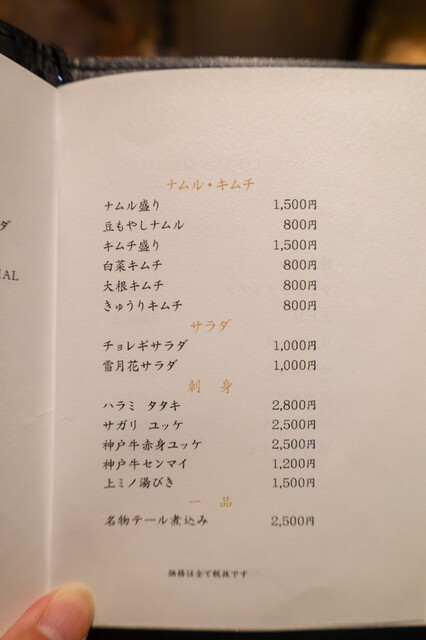 ダ
IAL
ナムル・キムチ
ナムル盛り 1,500円
豆もやしナムル 800円
キムチ盛り 1,500円
白菜キムチ 800円
大根キムチ 800円
きゅうりキムチ 800円
サラダ
チョレギサラダ 1,000円
雪月花サラダ 1,000円
刺 身
ハラミ タタキ 2,800円
サガリ ユッケ 2,500円
神戸牛赤身ユッケ 2,500円
神戸牛センマイ 1,200円
上ミノ湯びき 1,500円
一 品
名物テール煮込み 2,500円
価格は全て税抜です